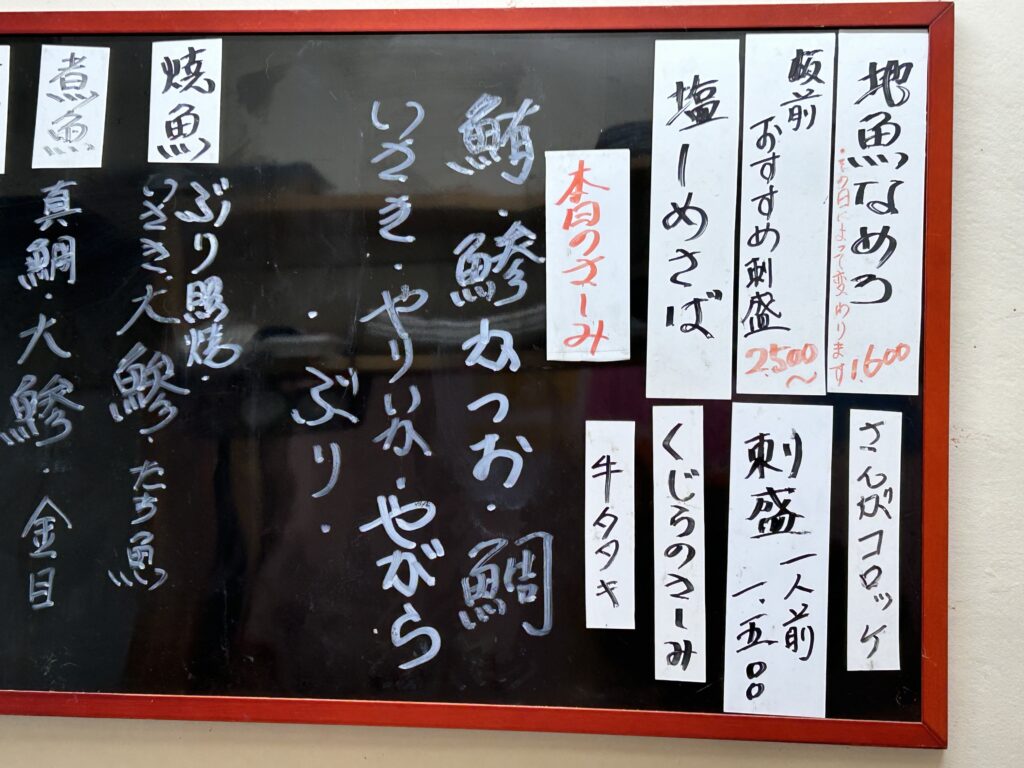 地魚なめろう
*その日によって変わります
1,600
板前おすすめ刺盛
2,500〜
塩しめさば
さんがコロッケ
刺盛 一人前 一、五〇〇
くじらのさしみ
牛タタキ
本日のさしみ
鮪・鯵かつお・鯛
いさき・やりいか・やがら
・ぶり・
焼魚
ぶり照焼・
いさき・大鯵・たち魚
煮魚
真鯛・大鯵・金目